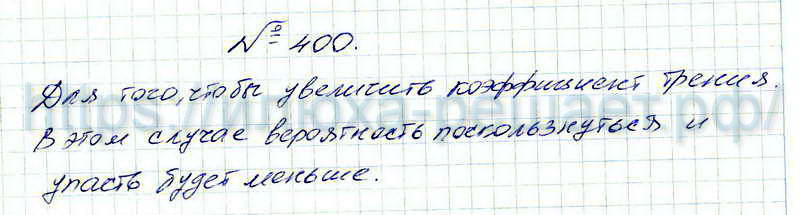 № 400.
Для того, чтобы увеличить коэффициент трения.
В этом случае вероятность поскользнуться и
упасть будет меньше.